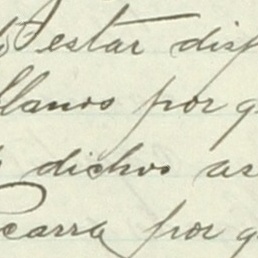 estar disp
llanos por q
dichos as
carra por q